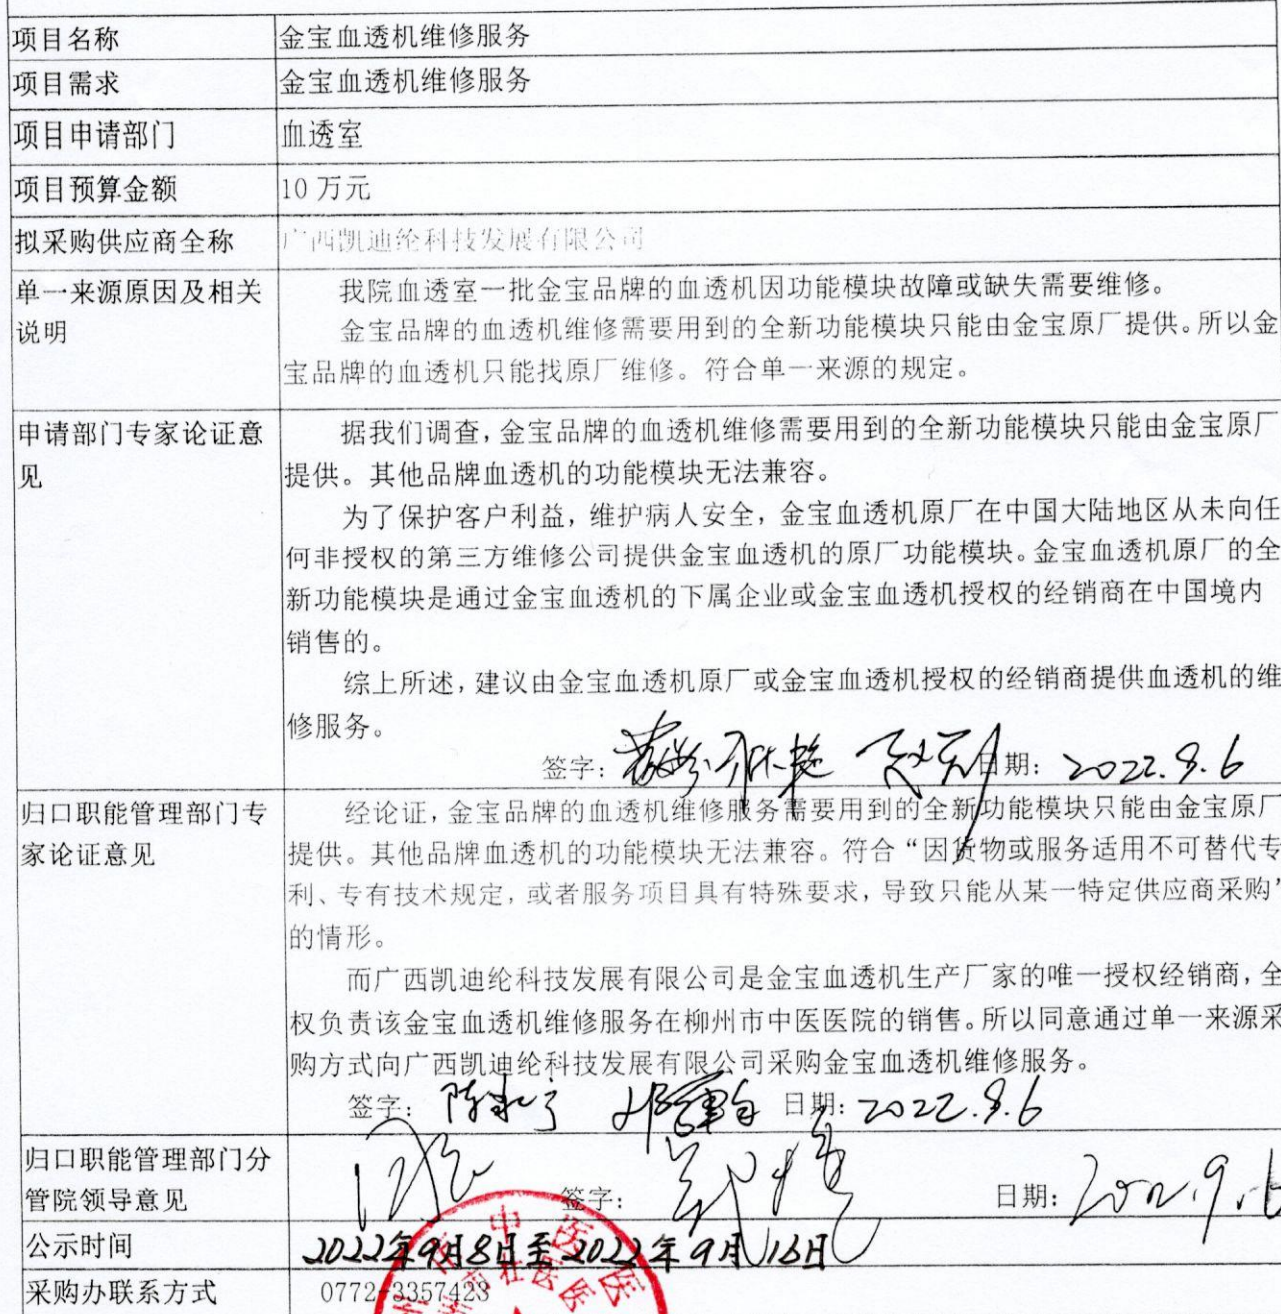 项目名称
金宝血透机维修服务
项目需求
金宝血透机维修服务
项目申请部门
血透室
项目预算金额
10 万元
拟采购供应商全称
广西凯迪纶科技发展有限公司
单一来源原因及相关
说明
我院血透室一批金宝品牌的血透机因功能模块故障或缺失需要维修。
金宝品牌的血透机维修需要用到的全新功能模块只能由金宝原厂提供。所以金
宝品牌的血透机只能找原厂维修。符合单一来源的规定。
申请部门专家论证意
见
据我们调查,金宝品牌的血透机维修需要用到的全新功能模块只能由金宝原厂
提供。其他品牌血透机的功能模块无法兼容。
为了保护客户利益,维护病人安全,金宝血透机原厂在中国大陆地区从未向任
何非授权的第三方维修公司提供金宝血透机的原厂功能模块。金宝血透机原厂的全
新功能模块是通过金宝血透机的下属企业或金宝血透机授权的经销商在中国境内
销售的。
综上所述,建议由金宝血透机原厂或金宝血透机授权的经销商提供血透机的维
修服务。
签字: 日期: 2022.9.6
归口职能管理部门专
家论证意见
经论证,金宝品牌的血透机维修服务需要用到的全新功能模块只能由金宝原厂
提供。其他品牌血透机的功能模块无法兼容。符合“因货物或服务适用不可替代专
利、专有技术规定,或者服务项目具有特殊要求,导致只能从某一特定供应商采购”
的情形。
而广西凯迪纶科技发展有限公司是金宝血透机生产厂家的唯一授权经销商,全
权负责该金宝血透机维修服务在柳州市中医医院的销售。所以同意通过单一来源采
购方式向广西凯迪纶科技发展有限公司采购金宝血透机维修服务。
签字: 日期: 2022.9.6
归口职能管理部门分
管院领导意见
签字: 日期: 2022.9.6
公示时间
2022年9月8日至2022年9月16日
采购办联系方式
0772-3357423